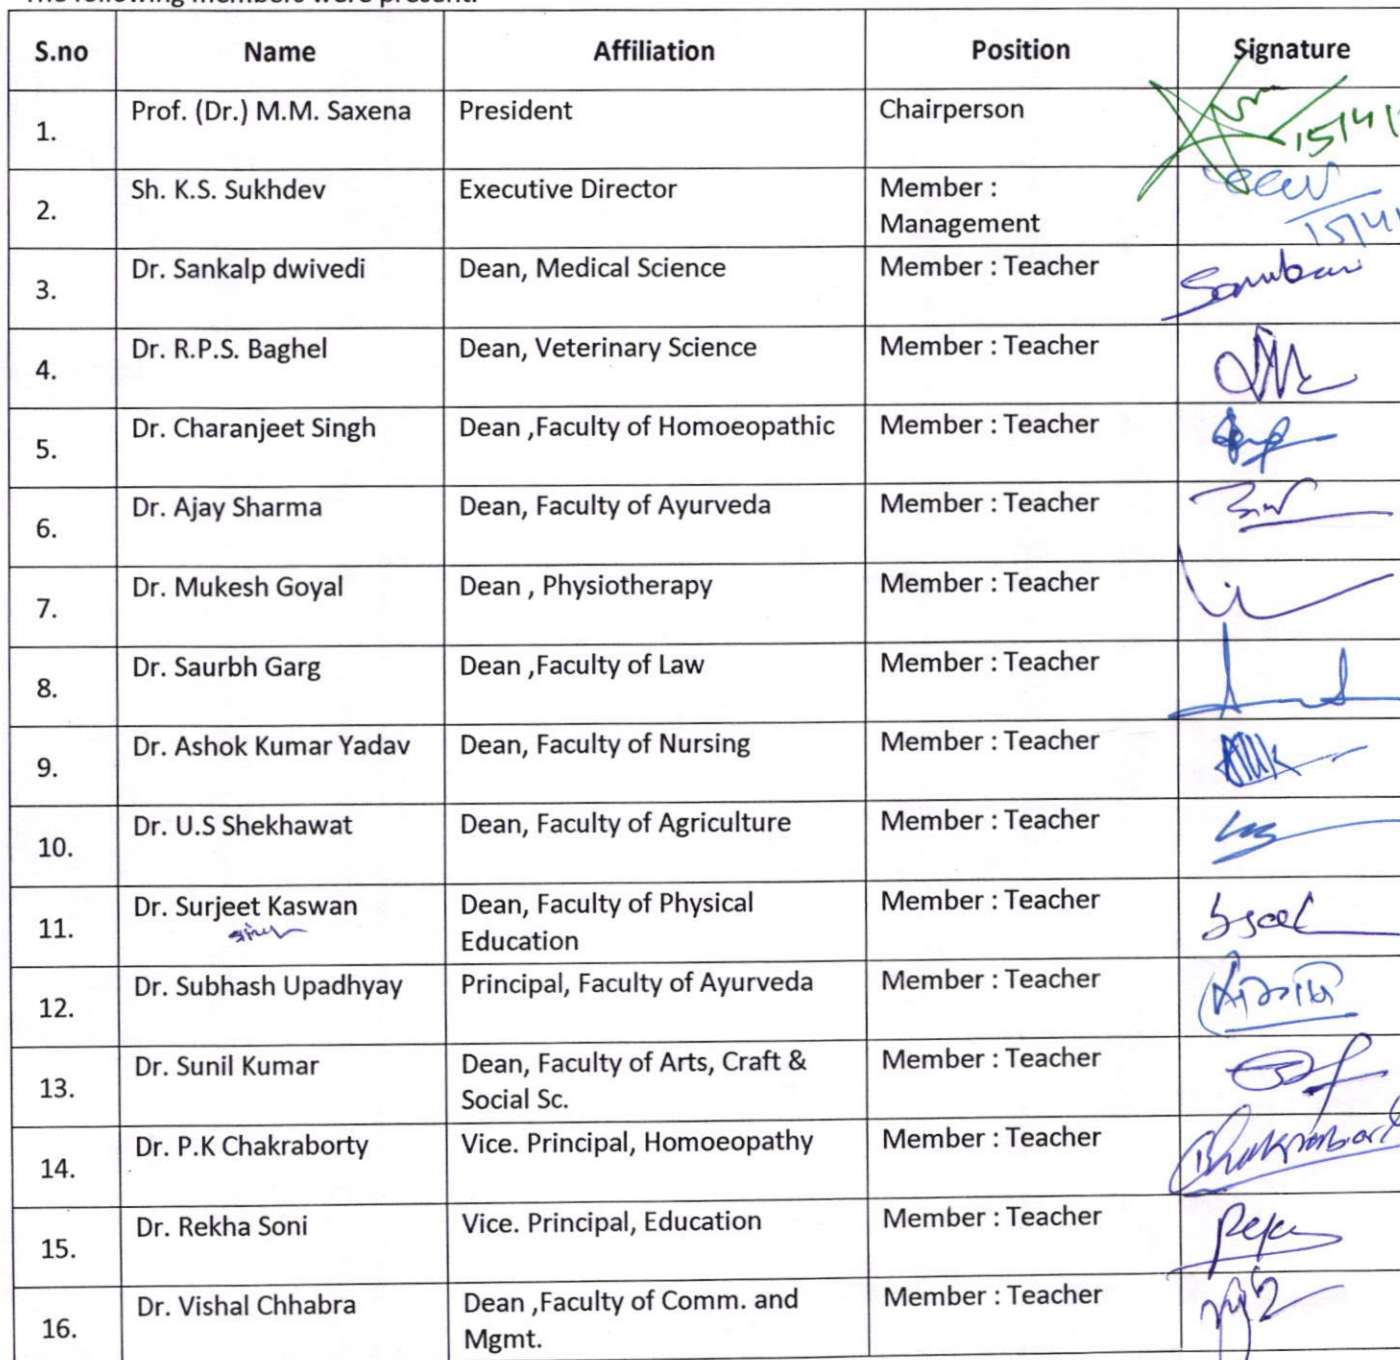 The following members were present:
S.no Name Affiliation Position Signature
1. Prof. (Dr.) M.M. Saxena President Chairperson 15/4/
2. Sh. K.S. Sukhdev Executive Director Member :
Management 15/4/
3. Dr. Sankalp dwivedi Dean, Medical Science Member : Teacher
4. Dr. R.P.S. Baghel Dean, Veterinary Science Member : Teacher
5. Dr. Charanjeet Singh Dean ,Faculty of Homoeopathic Member : Teacher
6. Dr. Ajay Sharma Dean, Faculty of Ayurveda Member : Teacher
7. Dr. Mukesh Goyal Dean , Physiotherapy Member : Teacher
8. Dr. Saurbh Garg Dean ,Faculty of Law Member : Teacher
9. Dr. Ashok Kumar Yadav Dean, Faculty of Nursing Member : Teacher
10. Dr. U.S Shekhawat Dean, Faculty of Agriculture Member : Teacher
11. Dr. Surjeet Kaswan Dean, Faculty of Physical Member : Teacher
Education
12. Dr. Subhash Upadhyay Principal, Faculty of Ayurveda Member : Teacher
13. Dr. Sunil Kumar Dean, Faculty of Arts, Craft & Member : Teacher
Social Sc.
14. Dr. P.K Chakraborty Vice. Principal, Homoeopathy Member : Teacher
15. Dr. Rekha Soni Vice. Principal, Education Member : Teacher
16. Dr. Vishal Chhabra Dean ,Faculty of Comm. and Member : Teacher
Mgmt.